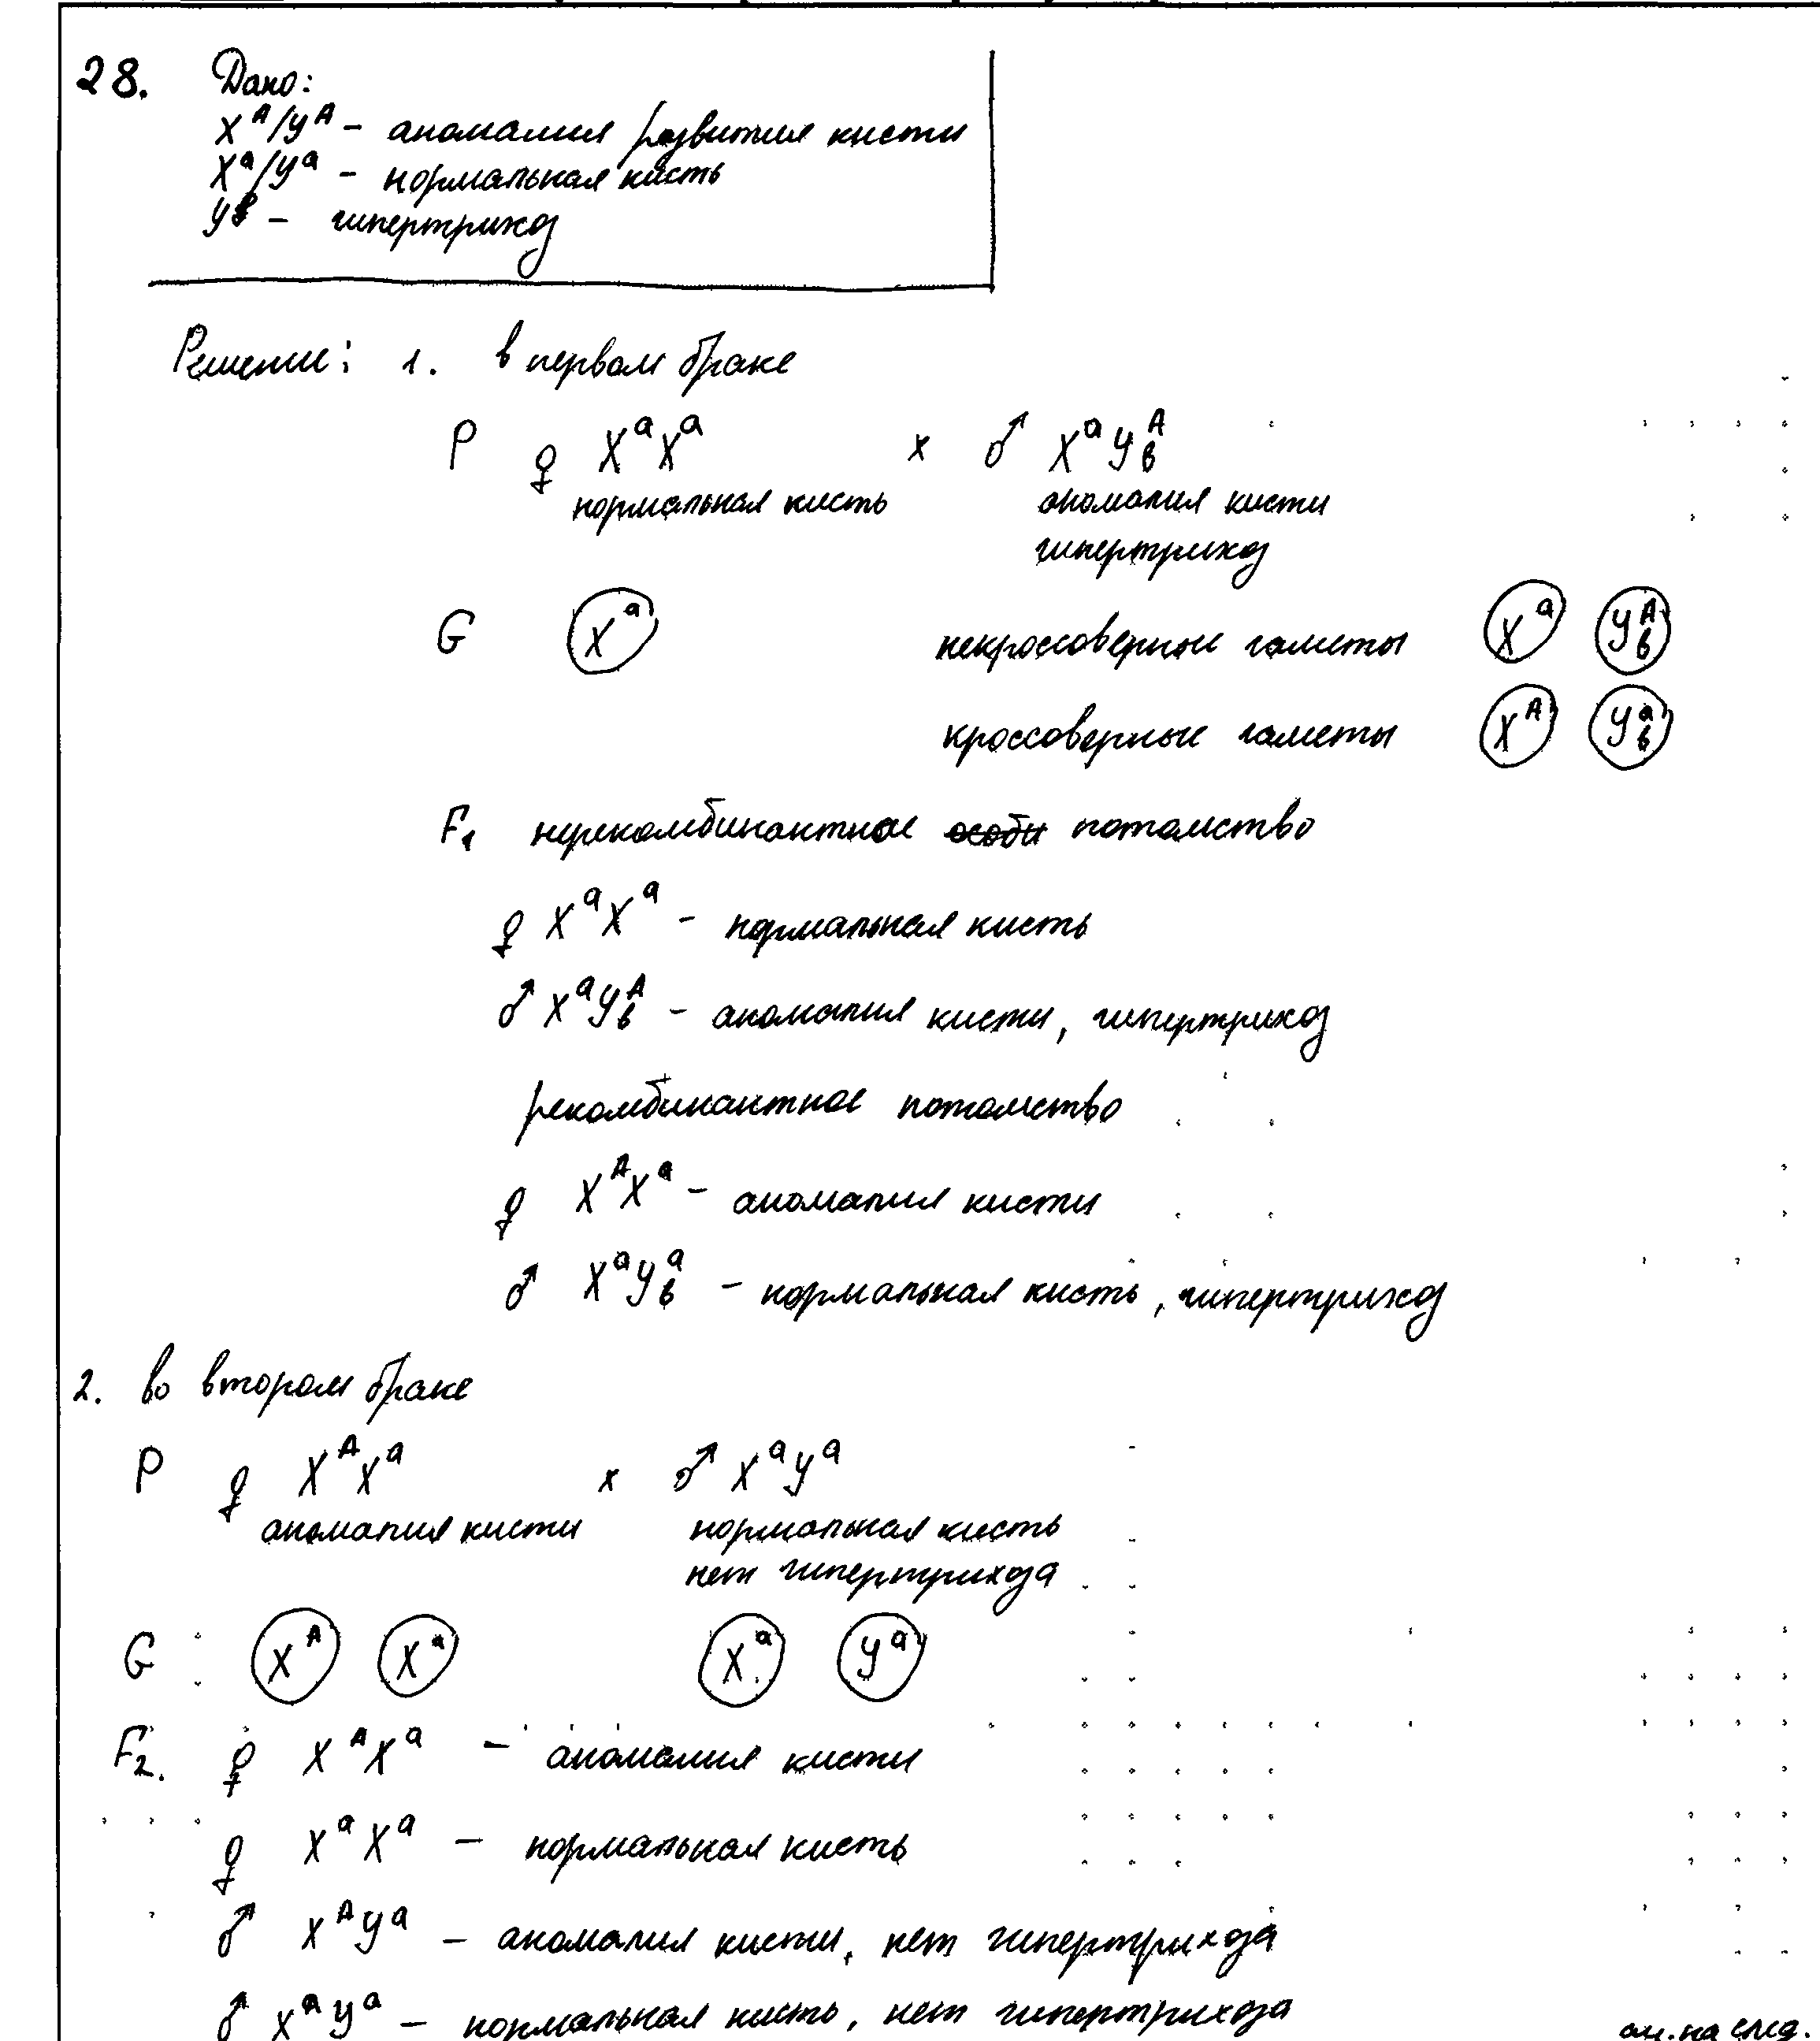 28. Дано:
X^A/Y^A – аномалия развития кисти
X^a/Y^a – нормальная кисть
Y_в – гипертрихоз
Решение: 1. в первом браке
P ♀ X^aX^a x ♂ X^aY^A_в
нормальная кисть аномалия кисти
гипертрихоз
G X^a некроссоверные гаметы X^a Y^A_в
кроссоверные гаметы X^A Y^a_в
F1 нерекомбинантное потомство
♀ X^aX^a – нормальная кисть
♂ X^aY^A_в – аномалия кисти, гипертрихоз
рекомбинантное потомство
♀ X^AX^a – аномалия кисти
♂ X^aY^a_в – нормальная кисть, гипертрихоз
2. во втором браке
P ♀ X^AX^a x ♂ X^aY^a
аномалия кисти нормальная кисть
нет гипертрихоза
G X^A X^a X^a Y^a
F2. ♀ X^AX^a – аномалия кисти
♀ X^aX^a – нормальная кисть
♂ X^AY^a – аномалия кисти, нет гипертрихоза
♂ X^aY^a – нормальная кисть, нет гипертрихоза
см. на след.